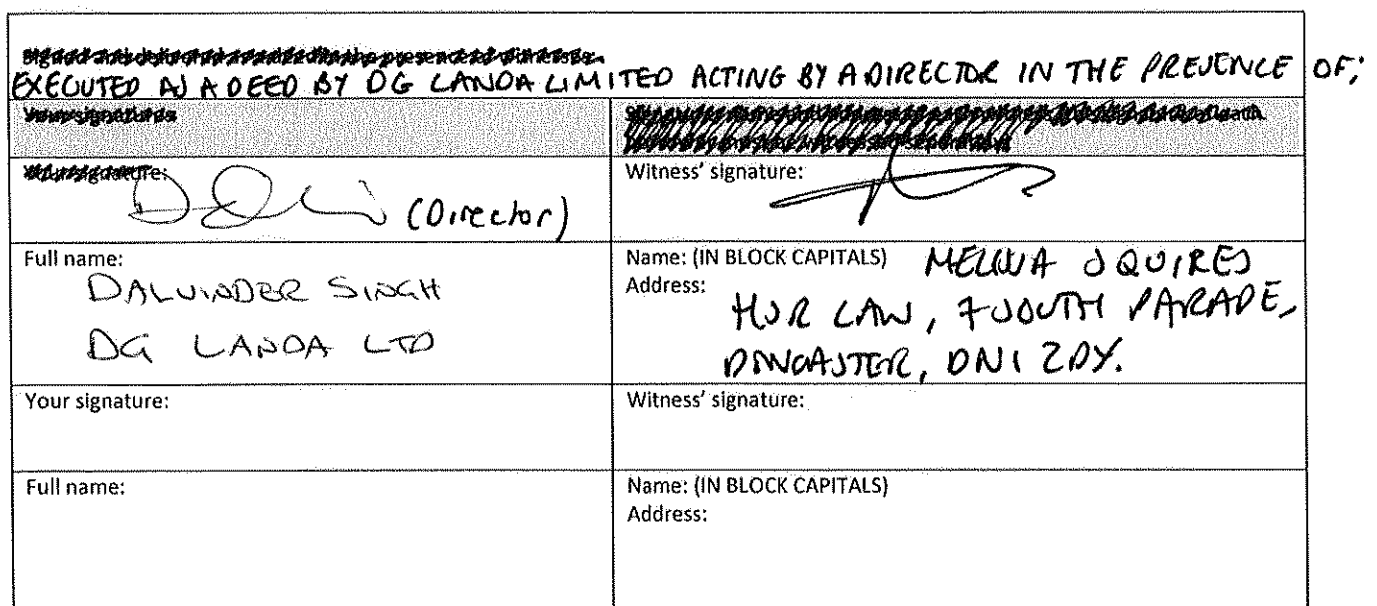 EXECUTED AS A DEED BY DG LANDA LIMITED ACTING BY A DIRECTOR IN THE PRESENCE OF;
Your signatures
Witness' signature:
(Director)
Full name:
DALVINDER SINGH
DG LANDA LTD
Name: (IN BLOCK CAPITALS) SQUIRES
Address:
LAW, 7 SOUTH PARADE,
DONCASTER, DN1 2DY.
Your signature:
Witness' signature:
Full name:
Name: (IN BLOCK CAPITALS)
Address: